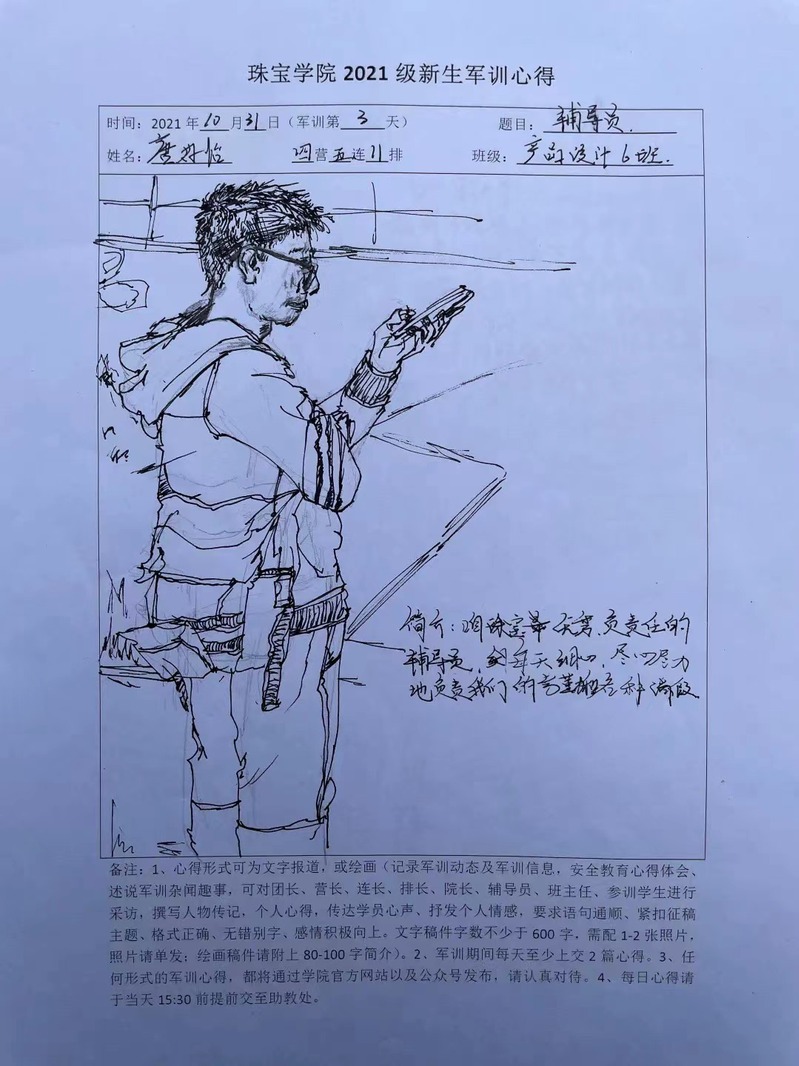 珠宝学院 2021 级新生军训心得
时间：2021 年 10 月 31 日（军训第 3 天） 题目：辅导员
姓名：唐 怡 四营五连11排 班级：产品设计6班.
简介：咱珠宝最 负责任的
辅导员，每天细心、尽心尽力
地负责我们的
备注：1、心得形式可为文字报道，或绘画（记录军训动态及军训信息，安全教育心得体会、
述说军训杂闻趣事，可对团长、营长、连长、排长、院长、辅导员、班主任、参训学生进行
采访，撰写人物传记，个人心得，传达学员心声、抒发个人情感，要求语句通顺、紧扣征稿
主题、格式正确、无错别字、感情积极向上。文字稿件字数不少于 600 字，需配 1-2 张照片，
照片请单发；绘画稿件请附上 80-100 字简介）。2、军训期间每天至少上交 2 篇心得。3、任
何形式的军训心得，都将通过学院官方网站以及公众号发布，请认真对待。4、每日心得请
于当天 15:30 前提前交至助教处。